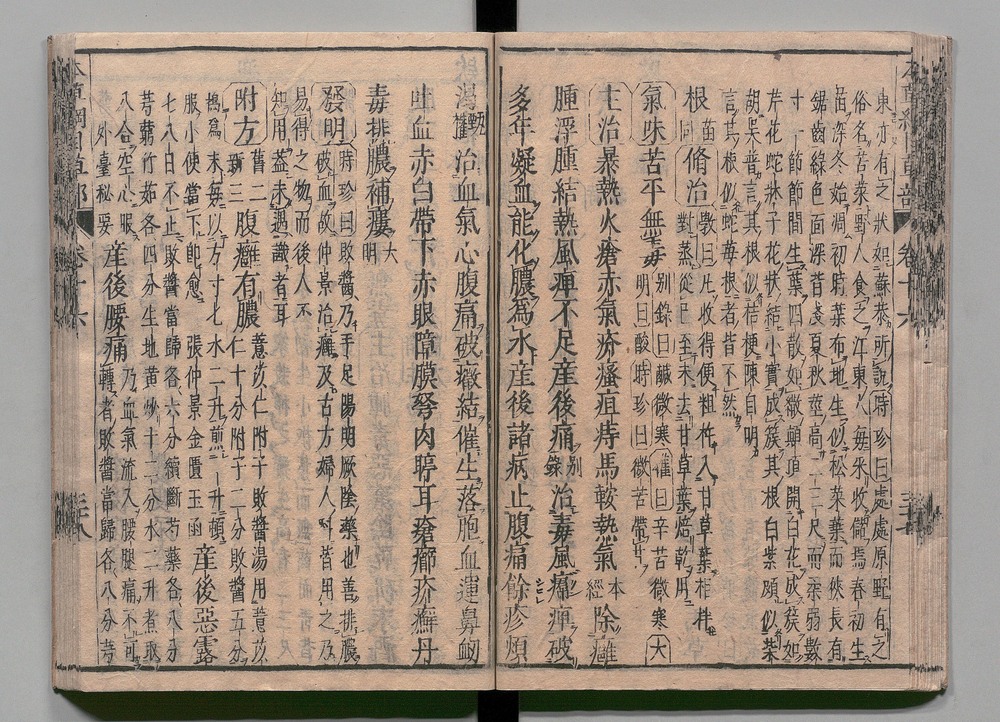 東亦有之狀如蘇恭所說時珍曰處處原野有之
俗名苦菜野人食之江東人每采收儲焉春初生
苗深冬始凋初時葉布地生似菘菜葉而狹長有
鋸齒綠色面深背淺夏秋莖高二三尺而柔弱數
寸一節節間生葉四散如繖顛頂開白花成簇如
芹花蛇牀子花狀結小實成簇其根白紫頗似柴
胡吳普言其根似桔梗陳自明
言其根似蛇莓根者皆不然
根苗同修治斆曰凡收得便粗杵入甘草葉相拌
對蒸從巳至未去甘草葉焙乾用
氣味苦平無毒別錄曰鹹微寒權曰辛苦微寒大
明曰酸時珍曰微苦帶甘
主治暴熱火瘡赤氣疥瘙疽痔馬鞍熱氣本經除癰
腫浮腫結熱風痺不足產後痛別錄治毒風𤸷痺破
多年凝血能化膿為水產後諸病止腹痛餘疹煩
渴甄權治血氣心腹痛破癥結催生落胞血運鼻衄
吐血赤白帶下赤眼障膜努肉聤耳瘡癤疥癬丹
毒排膿補瘻大明
發明時珍曰敗醬乃手足陽明厥陰藥也善排膿
破血故仲景治癰及古方婦人科皆用之乃
易得之物而後人不
知用蓋未遇識者耳
附方舊二新三腹癰有膿薏苡仁附子敗醬湯用薏苡
仁十分附子二分敗醬五分
搗為末每以方寸七水二升煎一升頓
服小便當下卽愈張仲景金匱玉函產後惡露
七八日不止敗醬當歸各六分續斷芍藥各八分
芎藭竹茹各四分生地黃炒十二分水二升煮取
八合空心服產後腰痛乃血氣流入腰腿痛不可
外臺秘要轉者敗醬當歸各八分芎
本草綱目草部
卷十六